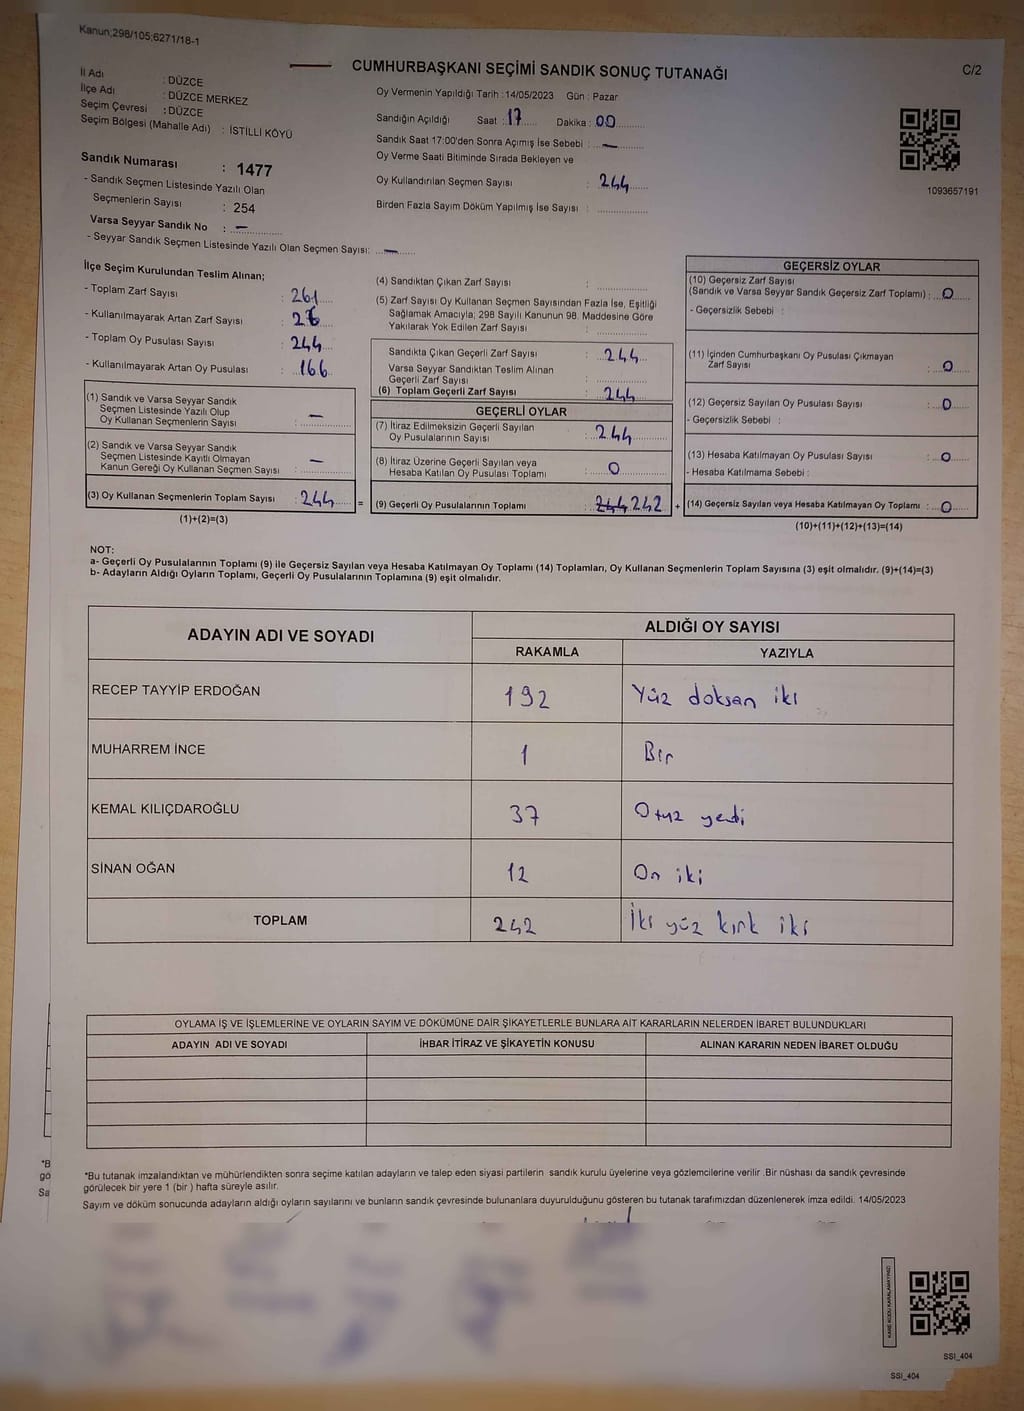 Kanun;298/105;6271/18-1
CUMHURBAŞKANI SEÇİMİ SANDIK SONUÇ TUTANAĞI
C/2
İl Adı : DÜZCE
İlçe Adı : DÜZCE MERKEZ
Seçim Çevresi : DÜZCE
Seçim Bölgesi (Mahalle Adı) : İSTİLLİ KÖYÜ
Sandık Numarası : 1477
- Sandık Seçmen Listesinde Yazılı Olan
Seçmenlerin Sayısı : 254
Varsa Seyyar Sandık No : —
- Seyyar Sandık Seçmen Listesinde Yazılı Olan Seçmen Sayısı: —
Oy Vermenin Yapıldığı Tarih :14/05/2023 Gün : Pazar
Sandığın Açıldığı Saat : 17 Dakika : 00
Sandık Saat 17:00'den Sonra Açımış İse Sebebi : —
Oy Verme Saati Bitiminde Sırada Bekleyen ve
Oy Kullandırılan Seçmen Sayısı : 244
Birden Fazla Sayım Döküm Yapılmış İse Sayısı :
1093657191
İlçe Seçim Kurulundan Teslim Alınan;
- Toplam Zarf Sayısı : 261
- Kullanılmayarak Artan Zarf Sayısı :
- Toplam Oy Pusulası Sayısı : 244
- Kullanılmayarak Artan Oy Pusulası : 166
(1) Sandık ve Varsa Seyyar Sandık
Seçmen Listesinde Yazılı Olup
Oy Kullanan Seçmenlerin Sayısı : —
(2) Sandık ve Varsa Seyyar Sandık
Seçmen Listesinde Kayıtlı Olmayan
Kanun Gereği Oy Kullanan Seçmen Sayısı : —
(3) Oy Kullanan Seçmenlerin Toplam Sayısı : 244 =
(1)+(2)=(3)
(4) Sandıktan Çıkan Zarf Sayısı :
(5) Zarf Sayısı Oy Kullanan Seçmen Sayısından Fazla İse, Eşitliği
Sağlamak Amacıyla; 298 Sayılı Kanunun 98. Maddesine Göre
Yakılarak Yok Edilen Zarf Sayısı :
Sandıkta Çıkan Geçerli Zarf Sayısı : 244
Varsa Seyyar Sandıktan Teslim Alınan
Geçerli Zarf Sayısı :
(6) Toplam Geçerli Zarf Sayısı : 244
GEÇERLİ OYLAR
(7) İtiraz Edilmeksizin Geçerli Sayılan
Oy Pusulalarının Sayısı : 244
(8) İtiraz Üzerine Geçerli Sayılan veya
Hesaba Katılan Oy Pusulası Toplamı : 0
(9) Geçerli Oy Pusulalarının Toplamı : 244 242 +
GEÇERSİZ OYLAR
(10) Geçersiz Zarf Sayısı
(Sandık ve Varsa Seyyar Sandık Geçersiz Zarf Toplamı) : 0
- Geçersizlik Sebebi :
(11) İçinden Cumhurbaşkanı Oy Pusulası Çıkmayan
Zarf Sayısı : 0
(12) Geçersiz Sayılan Oy Pusulası Sayısı : 0
- Geçersizlik Sebebi :
(13) Hesaba Katılmayan Oy Pusulası Sayısı : 0
- Hesaba Katılmama Sebebi :
(14) Geçersiz Sayılan veya Hesaba Katılmayan Oy Toplamı : 0
(10)+(11)+(12)+(13)=(14)
NOT:
a- Geçerli Oy Pusulalarının Toplamı (9) ile Geçersiz Sayılan veya Hesaba Katılmayan Oy Toplamı (14) Toplamları, Oy Kullanan Seçmenlerin Toplam Sayısına (3) eşit olmalıdır. (9)+(14)=(3)
b- Adayların Aldığı Oyların Toplamı, Geçerli Oy Pusulalarının Toplamına (9) eşit olmalıdır.
ADAYIN ADI VE SOYADI
ALDIĞI OY SAYISI
RAKAMLA YAZIYLA
RECEP TAYYİP ERDOĞAN 192 Yüz doksan iki
MUHARREM İNCE 1 Bir
KEMAL KILIÇDAROĞLU 37 Otuz yedi
SİNAN OĞAN 12 On iki
TOPLAM 242 İki yüz kırk iki
OYLAMA İŞ VE İŞLEMLERİNE VE OYLARIN SAYIM VE DÖKÜMÜNE DAİR ŞİKAYETLERLE BUNLARA AİT KARARLARIN NELERDEN İBARET BULUNDUKLARI
ADAYIN ADI VE SOYADI İHBAR İTİRAZ VE ŞİKAYETİN KONUSU ALINAN KARARIN NEDEN İBARET OLDUĞU
*B
gö
Sa
*Bu tutanak imzalandıktan ve mühürlendikten sonra seçime katılan adayların ve talep eden siyasi partilerin sandık kurulu üyelerine veya gözlemcilerine verilir .Bir nüshası da sandık çevresinde
görülecek bir yere 1 (bir ) hafta süreyle asılır.
Sayım ve döküm sonucunda adayların aldığı oyların sayılarını ve bunların sandık çevresinde bulunanlara duyurulduğunu gösteren bu tutanak tarafımızdan düzenlenerek imza edildi. 14/05/2023
KARE KODU KARALAMAYINIZ!
SSI_404
SSI_404